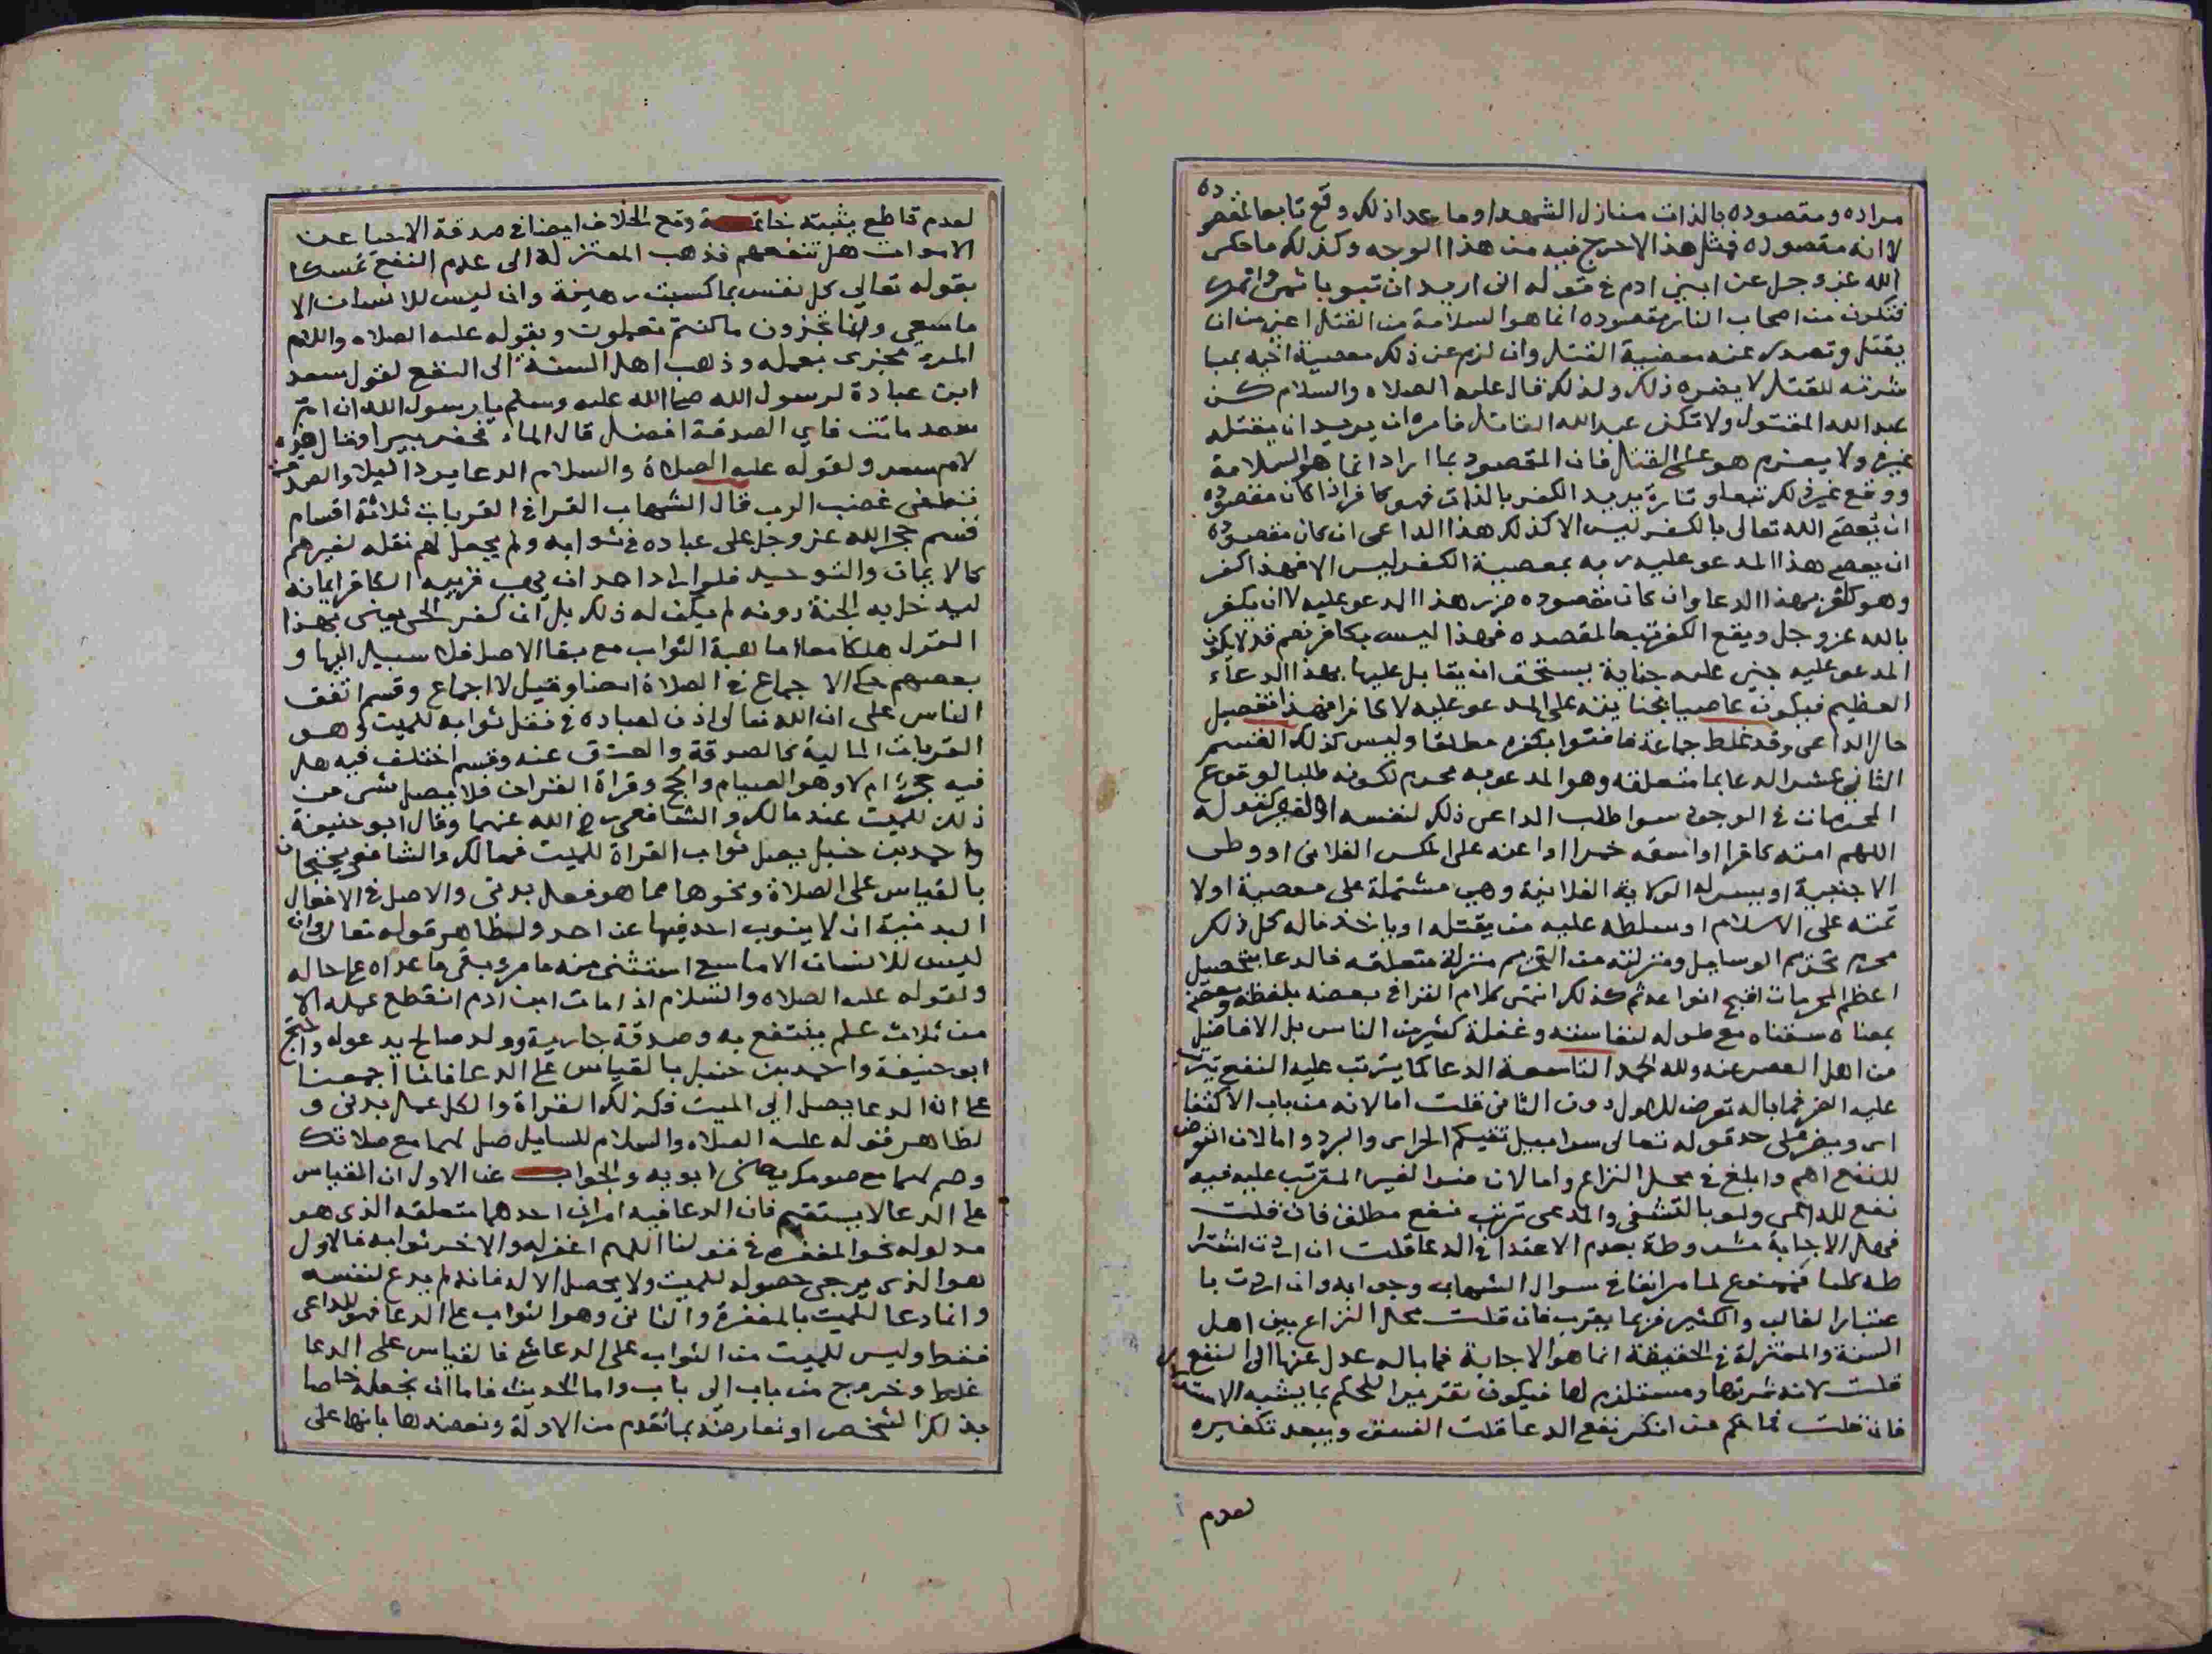 مراده ومقصوده بالذات منازل الشهدا وما عدا ذلك وقع تابعا لمقصوده
لا انه مقصوده فمثل هذا لا حرج فيه من هذا الوجه وكذلك ما حكى
الله عز وجل عن ابني ادم في قوله انى اريد ان تبوء باثمى واثمك
فتكون من اصحاب النار مقصوده انما هو السلامة من القتل اعنى من ان
يقتل وتصدر عنه معصية القتل وان لزم عن ذلك معصية اخيه بمبا
شرته للقتل لا يضره ذلك ولذلك قال عليه الصلاه والسلام كن
عبد الله المقتول ولا تكن عبد الله القاتل فامره ان يريد ان يقتله
غيره ولا يعزم هو على القتل فان المقصود بما اراد انما هو السلامة
ووقع غير ذلك تبعا وتارة يريد الكفر بالذات فهو كافر اذا كان مقصوده
ان يعصى الله تعالى بالكفر ليس الا كذلك هذا الداعى ان كان مقصوده
ان يعصى هذا المدعو عليه ربه بمعصية الكفر ليس الا فهذا كفر
وهو كافر بهذا الدعا وان كان مقصوده ضرر هذا المدعو عليه لا ان يكفر
بالله عز وجل ويقع الكفر تبعا لمقصده فهذا ليس بكافر نعم قد لا يكون
المدعو عليه جنى عليه جناية يستحق ان يقابل عليها بهذا الدعاء
العظيم فيكون عاصيا بجنايته على المدعو عليه لا كافرا فهذا تفصيل
حال الداعى وقد غلط جماعة فافتوا بكفره مطلقا وليس كذلك القسم
الثاني عشر الدعا بما متعلقه وهو المدعو به محرم لكونه طلبا لوقوع
المحرمات في الوجود سوا طلب الداعى ذلك لنفسه او لغيره كقوله
اللهم امته كافرا او اسقه خمرا او اعنه على المكس الفلانى او وطى
الاجنبية او يسر له الولاية الفلانية وهي مشتملة على معصية او لا
تمته على الاسلام او سلطه عليه من يقتله او ياخذ ماله كل ذلك
محرم تحريم الوسايل ومنزلته من التحريم منزلة متعلقه فالدعا بتحصيل
اعظم المحرمات اقبح انواعه ثم كذلك انتهى كلام القرافي بعضه بلفظه وبعضه
بمعناه سقناه مع طوله لنفاسته وغفلة كثير من الناس بل الافاضل
من اهل العصر عنه ولله الحمد التاسعة الدعا كما يترتب عليه النفع يترتب
عليه الضر فما باله تعرض للاول دون الثانى قلت اما لانه من باب الاكتفا
اى ويضر على حد قوله تعالى سرابيل تقيكم الحر اى والبرد واما لان التعرض
للنفع اهم وابلغ في محل النزاع واما لان ضر الغير المترتب عليه فيه
نفع للداعى ولو بالتشفى والمدعى ترتب نفع مطلق فان قلت
فهل الاجابة مشروطة بعدم الاعتدا في الدعا قلت ان اردت اشترا
طه كليا فممنوع لما مر انفا في سوال الشهاب وجوابه وان اردت با
عتبار الغالب والكثير فربما يقرب فان قلت محل النزاع بين اهل
السنة والمعتزلة في الحقيقة انما هو الاجابة فما باله عدل عنها الى النفع
قلت لانه ثمرتها ومستلزم لها فيكون تقريرا للحكم بما يشبه الاستدلال
فان قلت فما حكم من انكر نفع الدعا قلت الفسق ويبعد تكفيره
لعدم
لعدم قاطع يثبته خاتمة وقع الخلاف ايضا في صدقة الاحيا عن
الاموات هل تنفعهم فذهب المعتزلة الى عدم النفع تمسكا
بقوله تعالى كل نفس بما كسبت رهينة وان ليس للانسان الا
ما سعى وانما تجزون ما كنتم تعملون وبقوله عليه الصلاه والسلام
المرء مجزى بعمله وذهب اهل السنة الى النفع لقول سعد
ابن عبادة لرسول الله صلى الله عليه وسلم يا رسول الله ان ام
سعد ماتت فاي الصدقة افضل قال الماء فحفر بيرا وقال هوه
لام سعد ولقوله عليه الصلاة والسلام الدعا يرد البلا والصدقة
تطفى غضب الرب قال الشهاب القرافي القربات ثلاثة اقسام
قسم حجر الله عز وجل على عباده في ثوابه ولم يجعل لهم نقله لغيرهم
كالايمان والتوحيد فلو اراد احد ان يهب قريبه الكافر ايمانه
ليدخل به الجنة دونه لم يكن له ذلك بل ان كفر الحى يعنى بهذا
القول هلكا معا اما هبة الثواب مع بقا الاصل فلا سبيل اليها و
بعضهم حكى الاجماع في الصلاة ايضا وقيل لا اجماع وقسم اتفق
الناس على ان الله تعالى اذن لعباده في نقل ثوابه للميت وهو
القربات المالية كالصدقة والعتق عنه وقسم اختلف فيه هل
فيه حجر ام لا وهو الصيام والحج وقراة القران فلا يحصل شى من
ذلك للميت عند مالك والشافعى رضي الله عنهما وقال ابو حنيفة
واحمد بن حنبل يصل ثواب القراة للميت فمالك والشافعى يحتجان
بالقياس على الصلاة ونحوها مما هو فعل بدنى والاصل في الافعال
البدنية ان لا ينوب احد فيها عن احد ولظاهر قوله تعالى وان
ليس للانسان الا ما سعى استثنى منه ما مر وبقى ما عداه على حاله
ولقوله عليه الصلاه والسلام اذا مات ابن ادم انقطع عمله الا
من ثلاث علم ينتفع به وصدقة جارية وولد صالح يدعو له واحتج
ابو حنيفة واحمد بن حنبل بالقياس على الدعا فاننا اجمعنا
على ان الدعا يصل الى الميت فكذلك القراة والكل عمل بدنى و
لظاهر قوله عليه الصلاه والسلام للسايل صل لهما مع صلاتك
وصم لهما مع صومك يعنى ابويه والجواب عن الاول ان القياس
على الدعا لا يستقيم فان الدعا فيه امران احدهما متعلقه الذى هو
مدلوله نحو المغفرة في قولنا اللهم اغفر له والاخر ثوابه فالاول
هو الذى يرجى حصوله للميت ولا يحصل الا له فانه لم يدع لنفسه
وانما دعا للميت بالمغفرة والثانى وهو الثواب على الدعا فهو للداعى
فقط وليس للميت من الثواب على الدعا شي فالقياس على الدعا
غلط وخروج من باب الى باب واما الحديث فاما ان نجعله خاصا
بذلك الشخص او نعارضه بما تقدم من الادلة ونعضدها بانها على